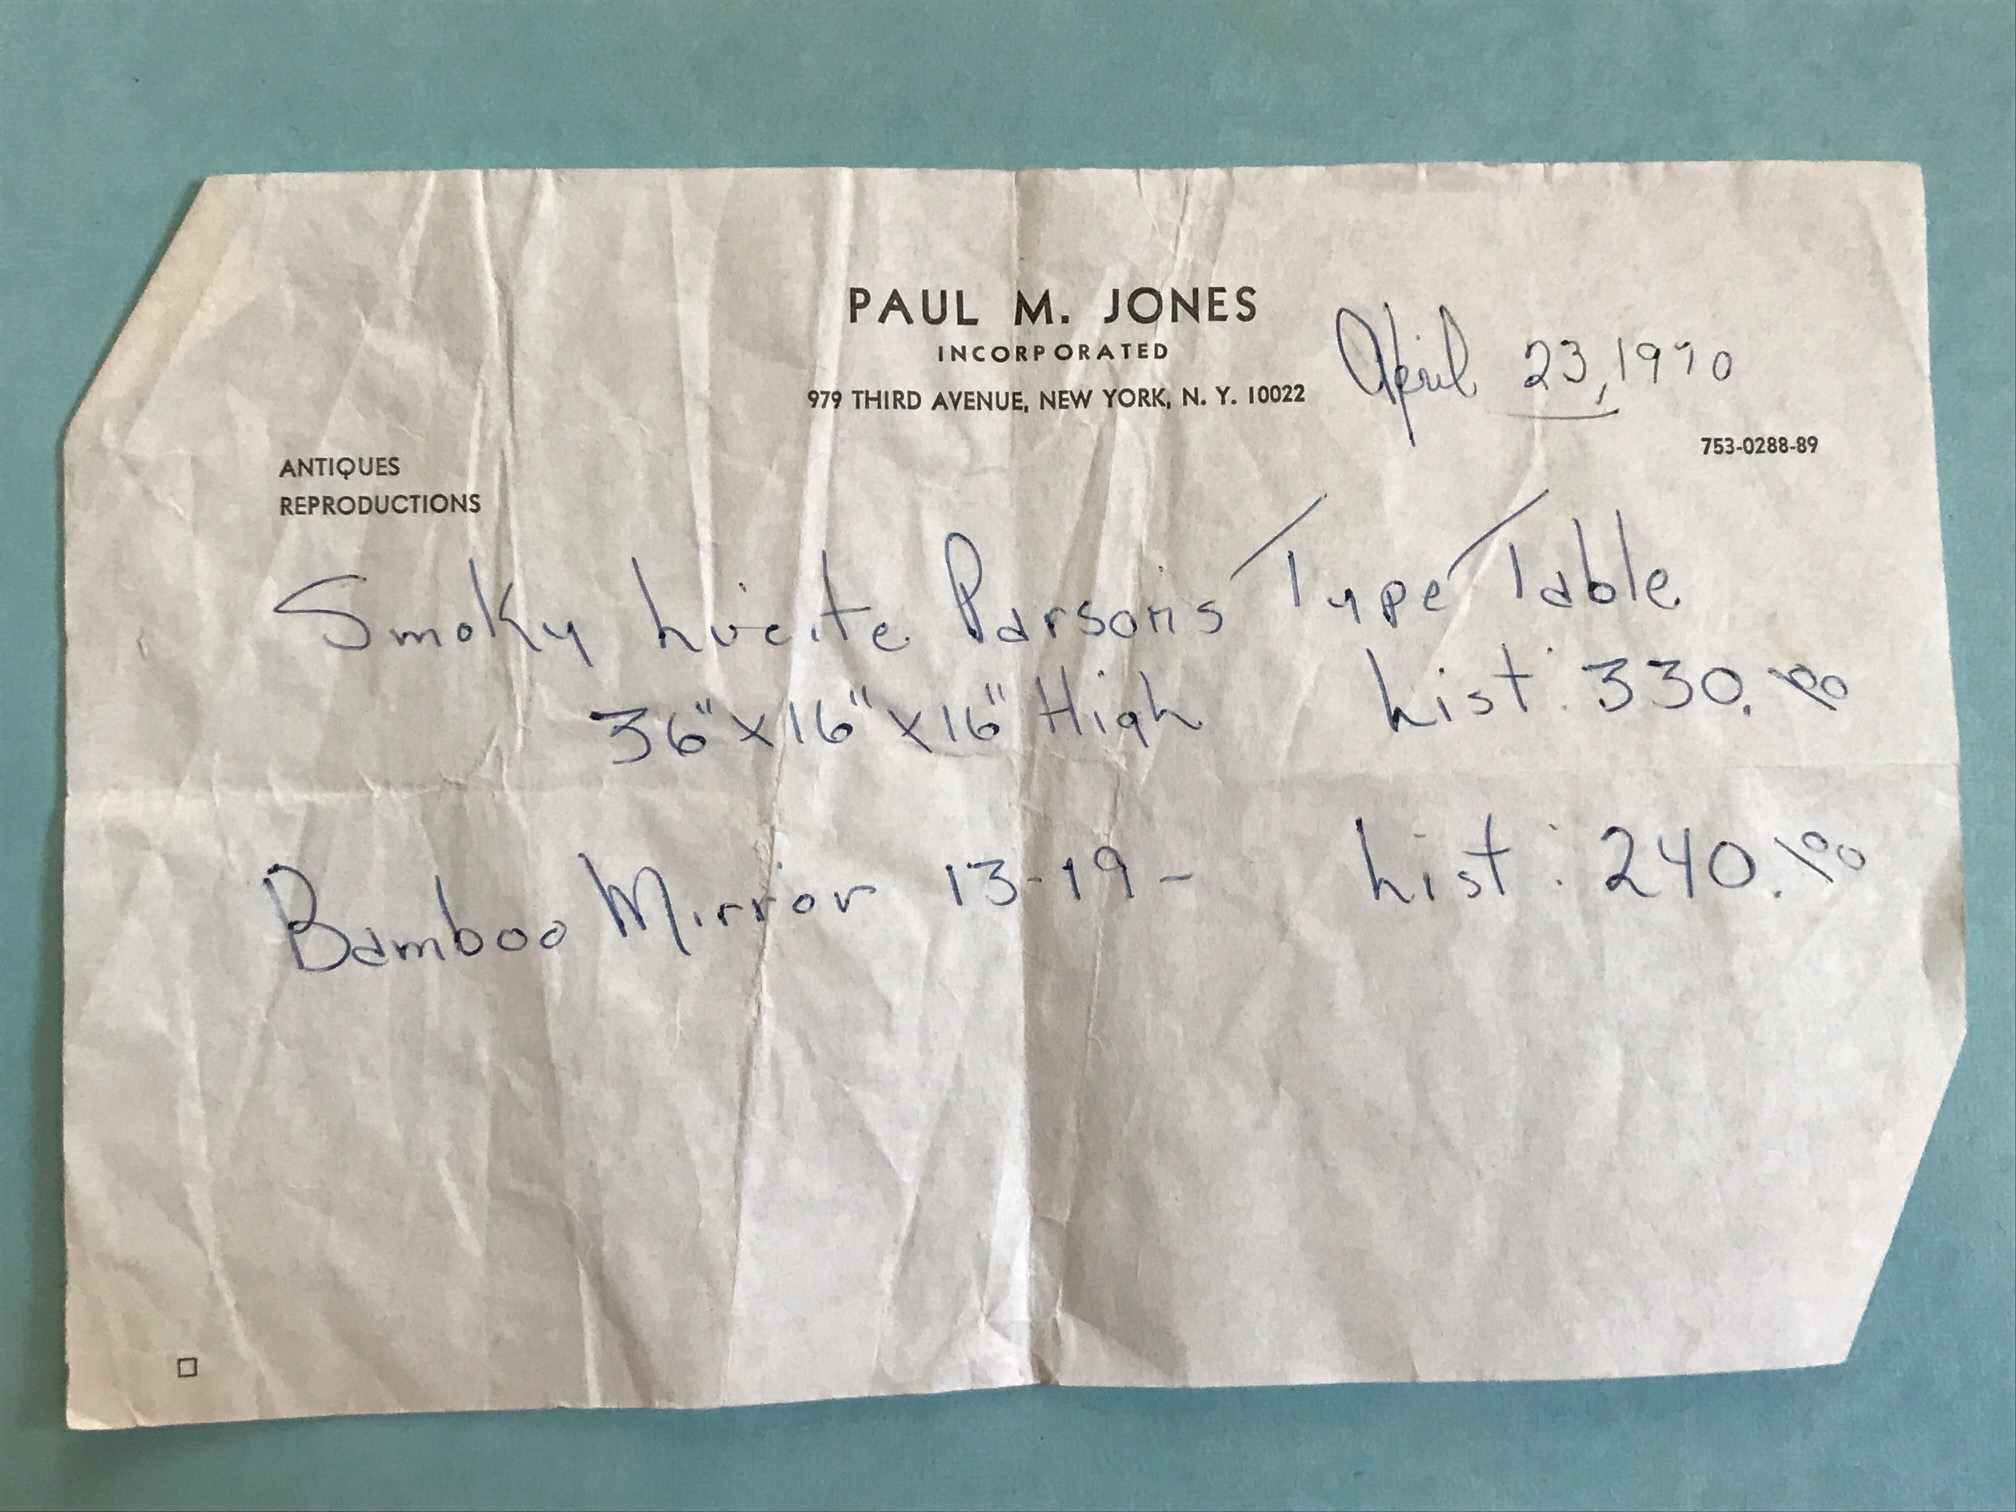 PAUL M. JONES
INCORPORATED
979 THIRD AVENUE, NEW YORK, N. Y. 10022
April 23, 1970
753-0288-89
ANTIQUES
REPRODUCTIONS
Smoky Lucite Parsons Type Table
36" x 16" x 16" High List: 330.00
Bamboo Mirror 13-19- List: 240.00